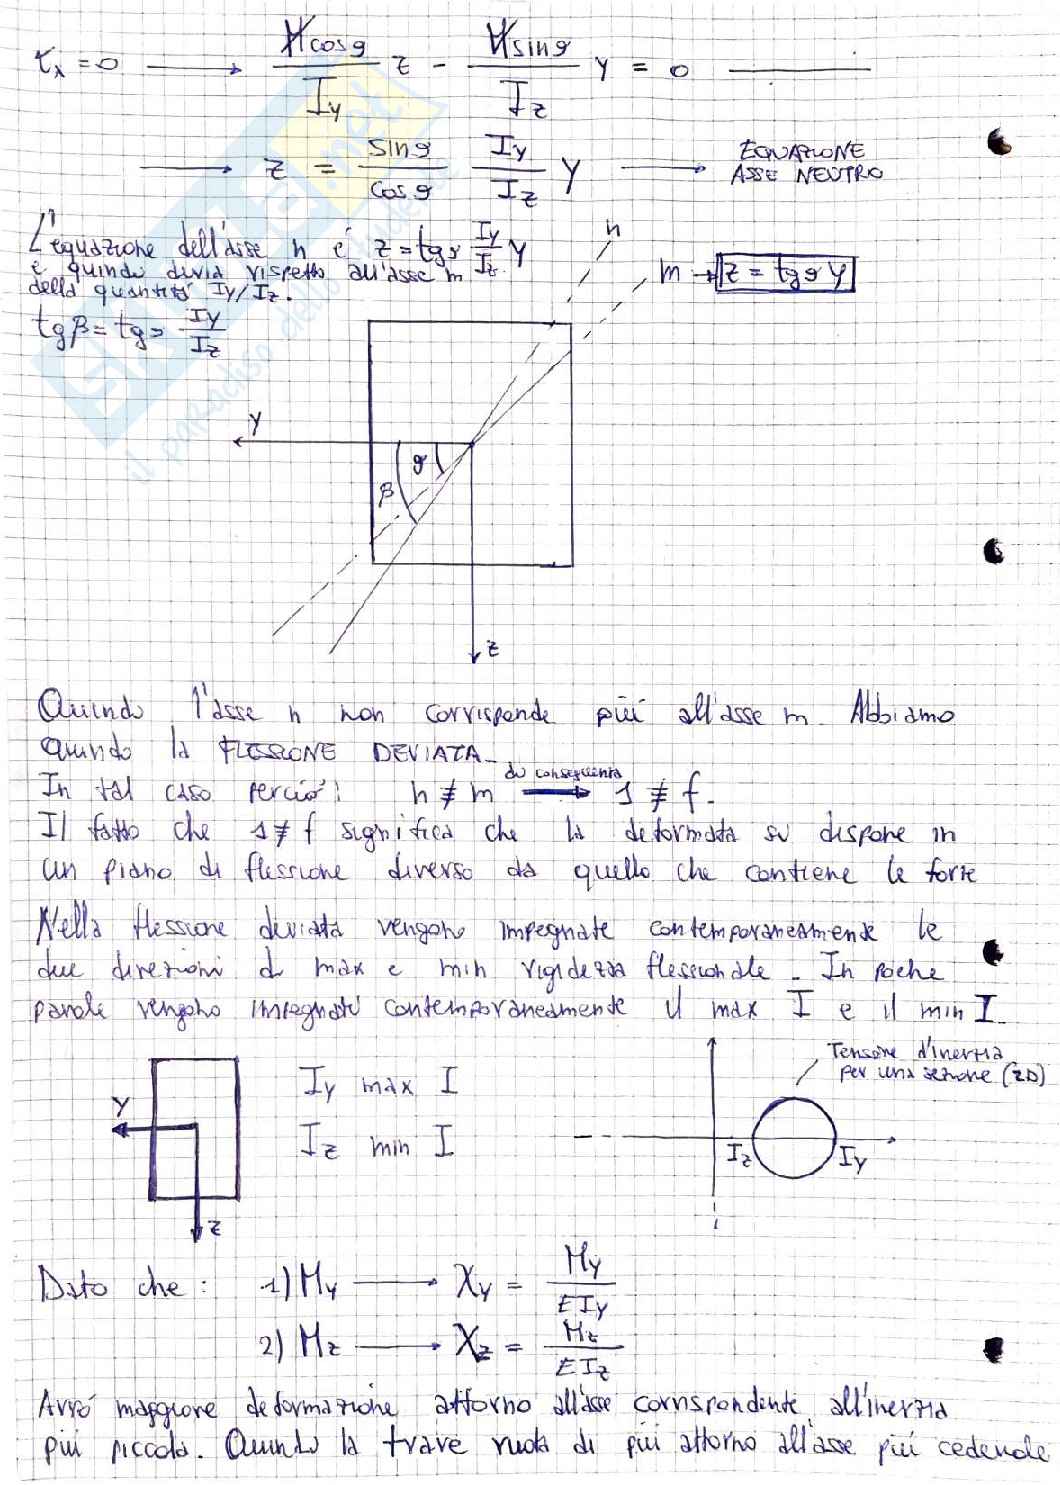 τx = 0 → Mcosφ/Iy z - Msinφ/Iz y = 0
→ z = sinφ/cosφ Iy/Iz y → EQUAZIONE
ASSE NEUTRO
L'equazione dell'asse n è z = tgφ Iy/Iz y
e quindi devia rispetto all'asse m
della quantità Iy/Iz.
tgβ = tgφ Iy/Iz
n
m → z = tgφ y
y
φ
β
z
Quindi l'asse n non corrisponde più all'asse m. Abbiamo
quindi la FLESSIONE DEVIATA.
di conseguenza
In tal caso perciò: n ≠ m → s ≠ f.
Il fatto che s ≠ f significa che la deformata si dispone in
un piano di flessione diverso da quello che contiene le forze
Nella flessione deviata vengono impegnate contemporaneamente le
due direzioni di max e min rigidezza flessionale. In poche
parole vengono impegnati contemporaneamente il max I e il min I.
Tensore d'inerzia
per una sezione (2D)
y
z
Iy max I
Iz min I
Iz
Iy
Dato che: 1) My → Xy = My/EIy
2) Mz → Xz = Mz/EIz
Avrò maggiore deformazione attorno all'asse corrispondente all'inerzia
più piccola. Quindi la trave ruota di più attorno all'asse più cedevole
skuola.net
il paradiso dello studente